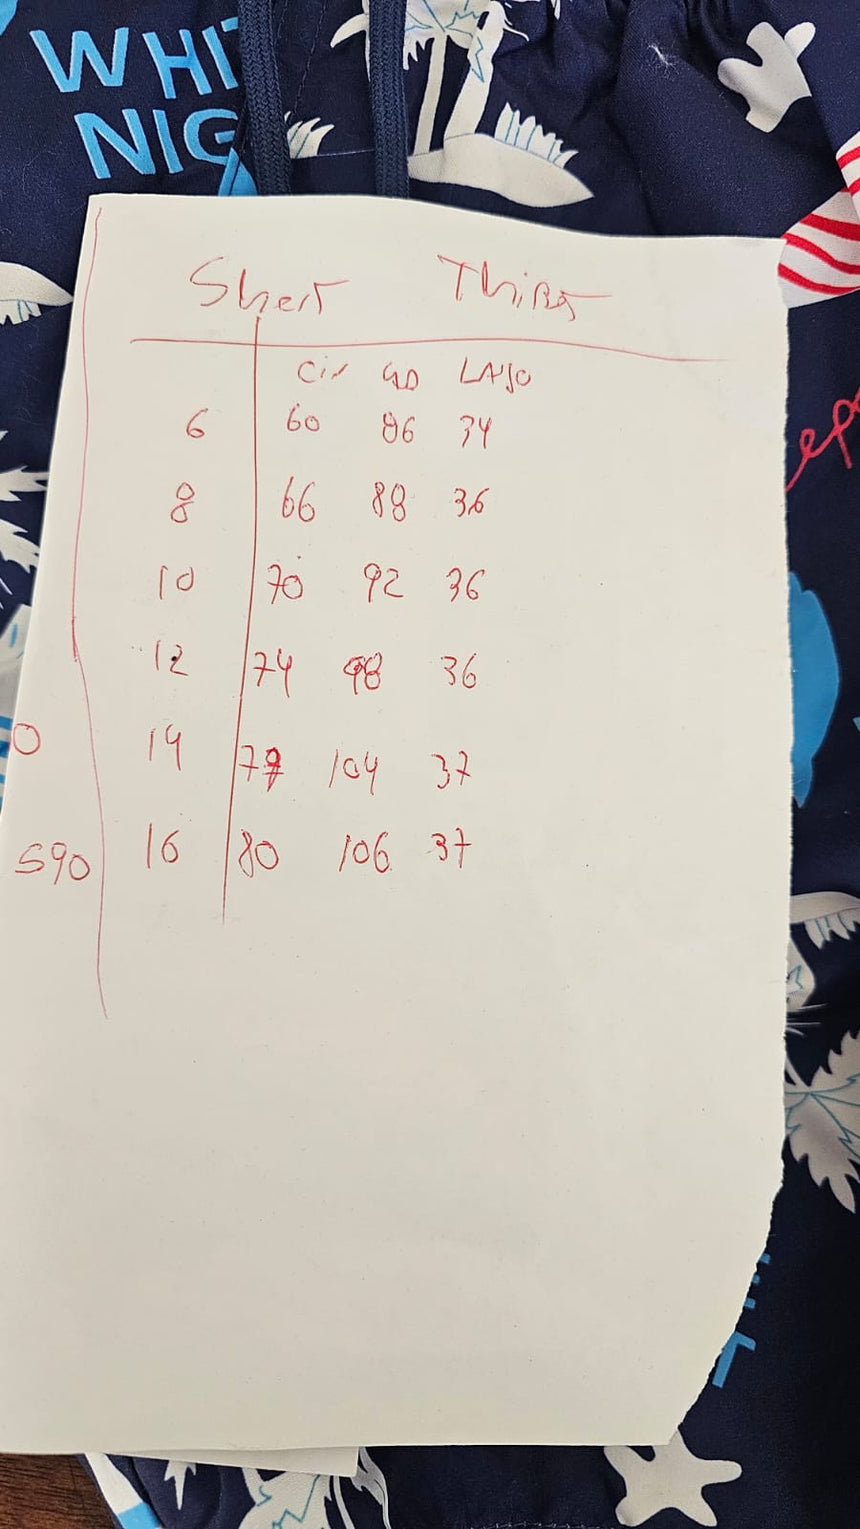 WHIT
NIG
Short Thiba
Cin CAD LARGO
6 60 86 34
8 66 88 36
10 70 92 36
12 74 98 36
0 14 104 37
590 16 80 106 37
ep